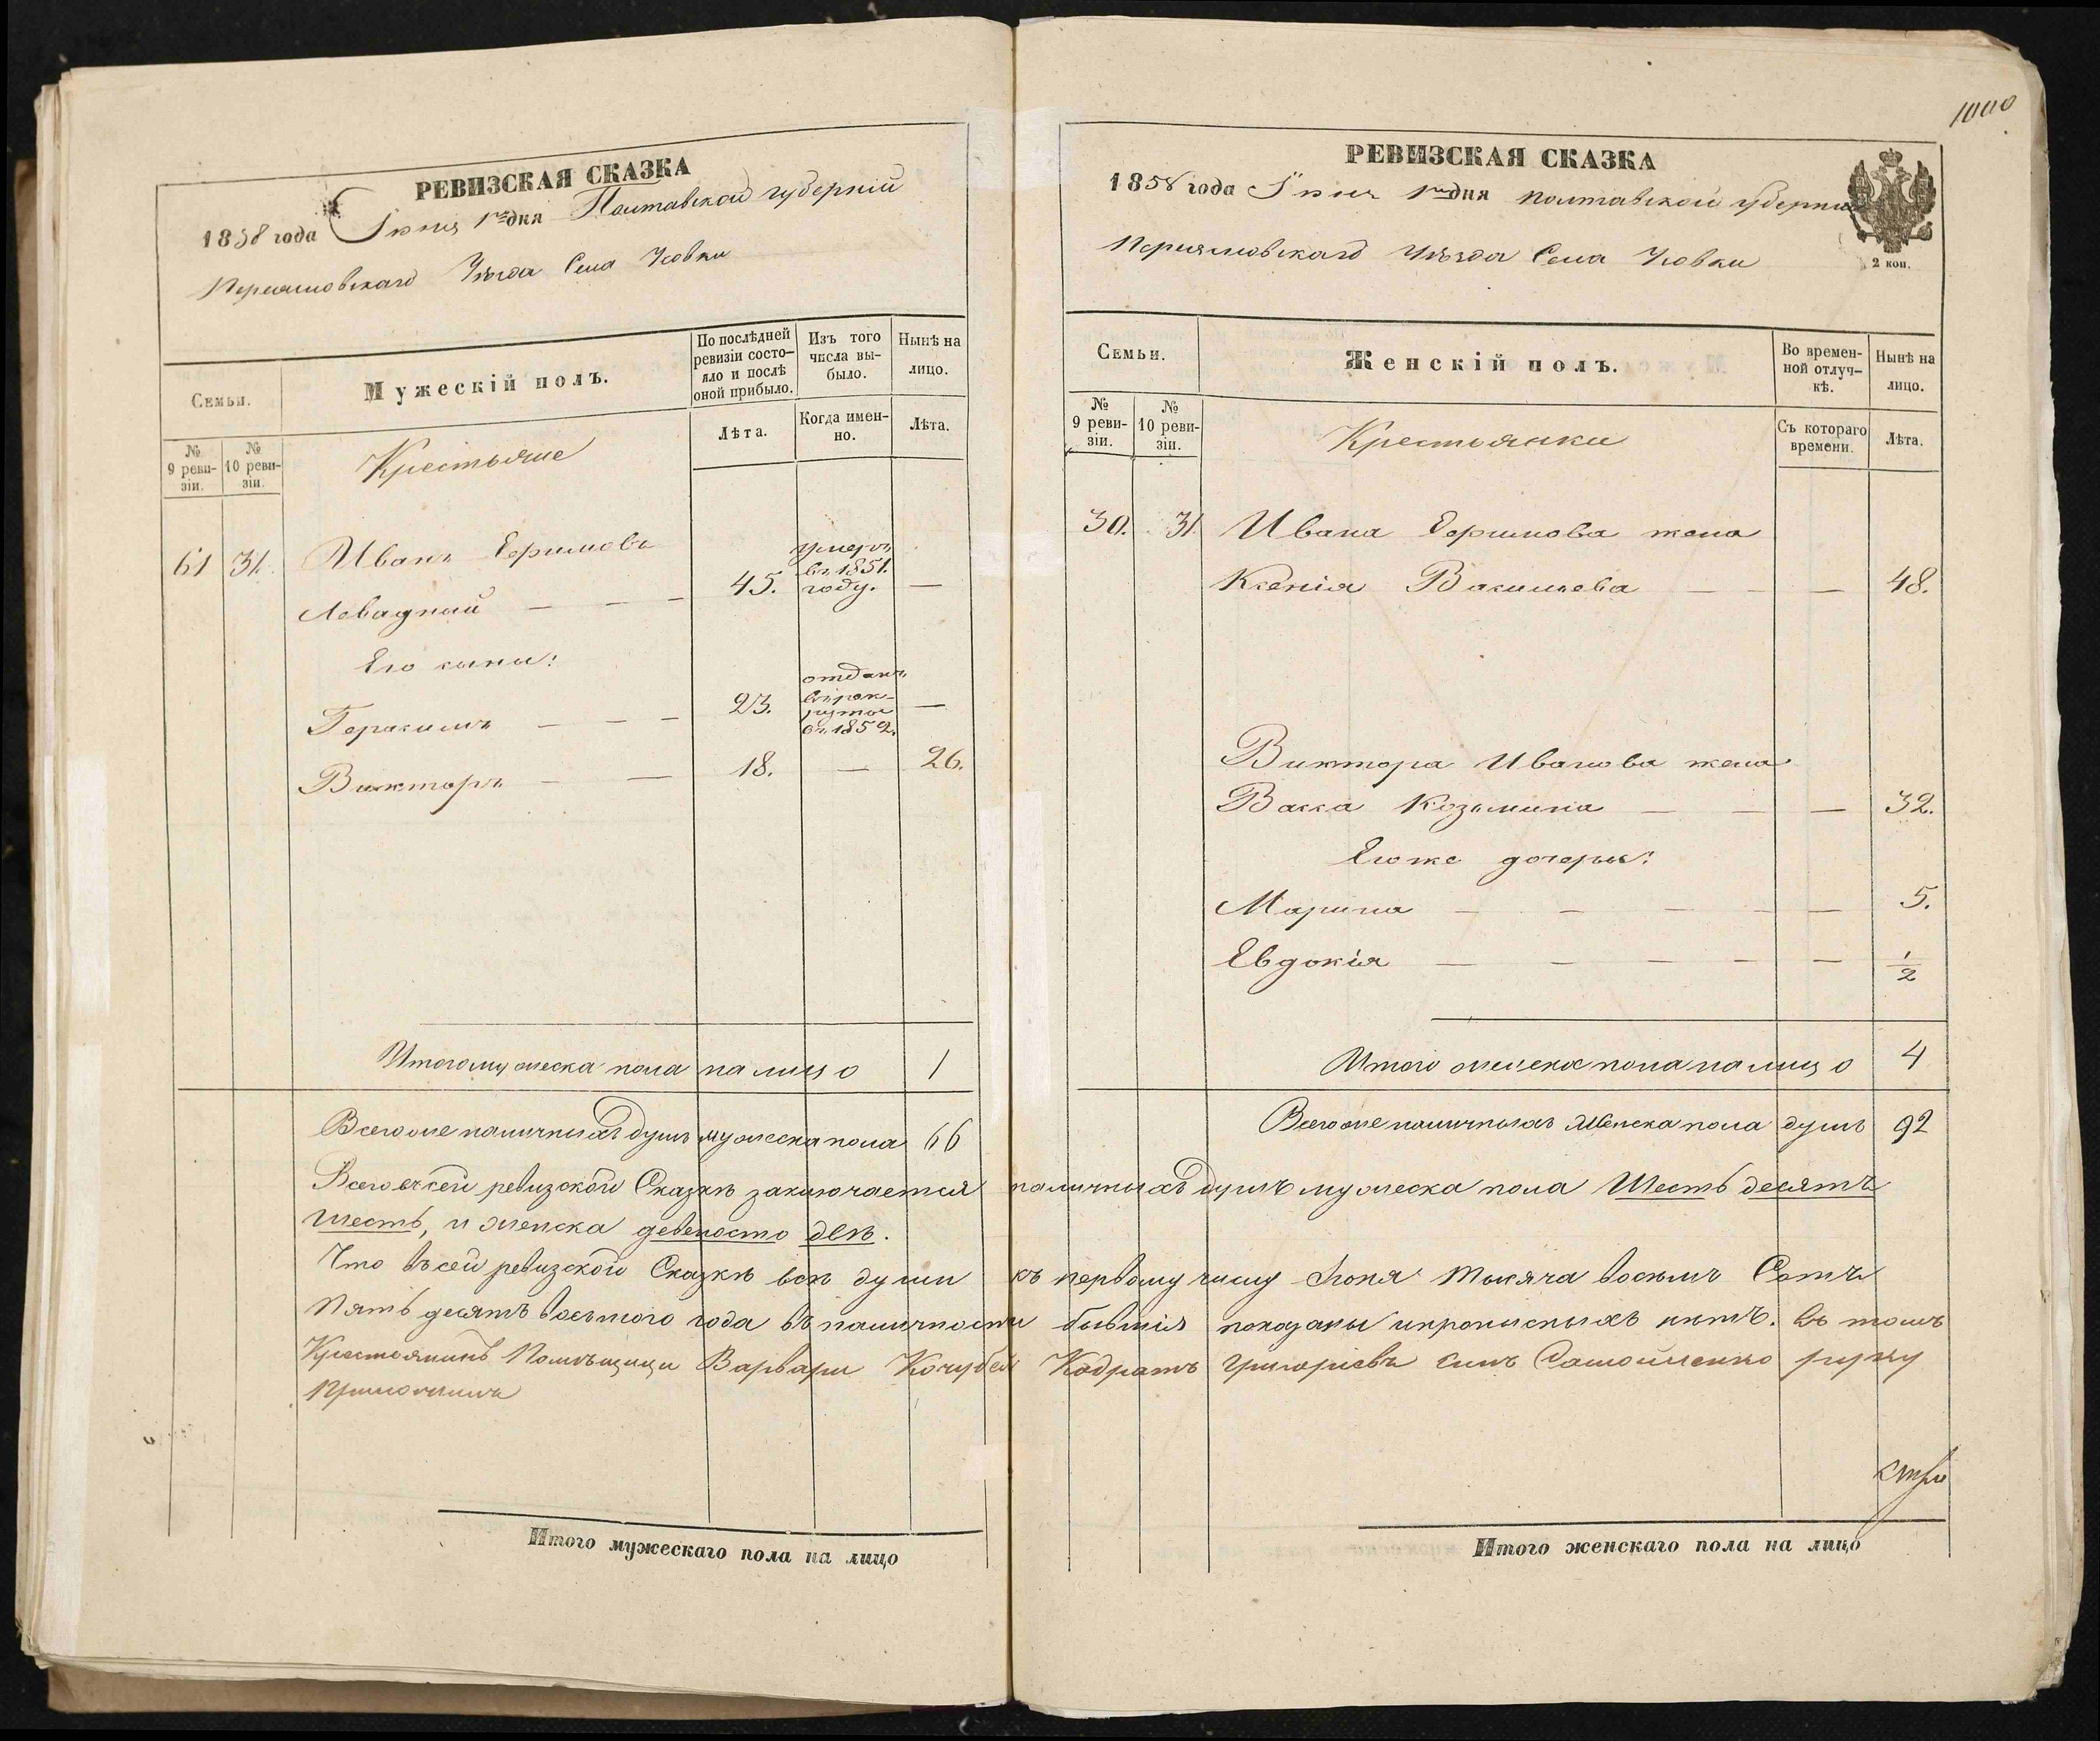 РЕВИЗСКАЯ СКАЗКА
1858 года Іюня 1го дня Полтавской губерніи
Переяславскаго Уѣзда Села Усовки
Семьи.
Мужескій полъ.
По послѣдней ревизіи состояло и послѣ оной прибыло.
Изъ того числа выбыло.
Нынѣ на лицо.
№ 9 ревизіи.
№ 10 ревизіи.
Крестьяне
Лѣта.
Когда именно.
Лѣта.
61 31. Иванъ Ефимовъ
Левадный — — — 45. умеръ въ 1851. году. —
Его сыны:
Герасимъ — — — 23. отданъ въ рекруты въ 1852. —
Викторъ — — 18. — 26.
Итого мужеска пола на лицо 1
Всего же наличныхъ душъ мужеска пола 66
РЕВИЗСКАЯ СКАЗКА
1858 года Іюня 1го дня Полтавской губерніи
Переяславскаго Уѣзда Села Усовки
2 коп.
1000
Семьи.
Женскій полъ.
Во временной отлучкѣ.
Нынѣ на лицо.
№ 9 ревизіи.
№ 10 ревизіи.
Крестьянки
Съ котораго времени.
Лѣта.
30. 31. Ивана Ефимова жена
Ксенія Васильева — — — 48.
Виктора Иванова жена
Васса Козьмина — — — 32.
Его же дочеры:
Марина — — — — — 5.
Евдокія — — — — — 1/2
Итого женска пола на лицо 4
Всего же наличныхъ женска пола душъ 92
Всего въ сей ревизской Сказкѣ заключается наличныхъ душъ мужеска пола Шесть десятъ
шесть, и женска девеносто двѣ.
Что въ сей ревизской Сказкѣ всѣ души къ первому числу Іюня тысяча восемъ Сотъ
Пять десятъ восьмого года въ наличности бывшія показаны и прописныхъ нѣтъ. въ томъ
Крестьянинъ Помѣщици Варвары Кочубей Кодратъ Григорievъ сынъ Самойленко руку
приложилъ
Итого мужескаго пола на лицо
Итого женскаго пола на лицо